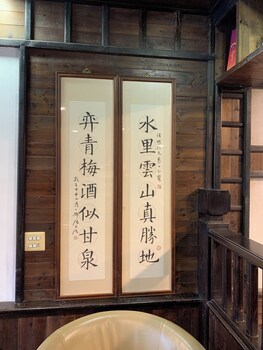 水里雲山真勝地
弈青梅酒似甘泉